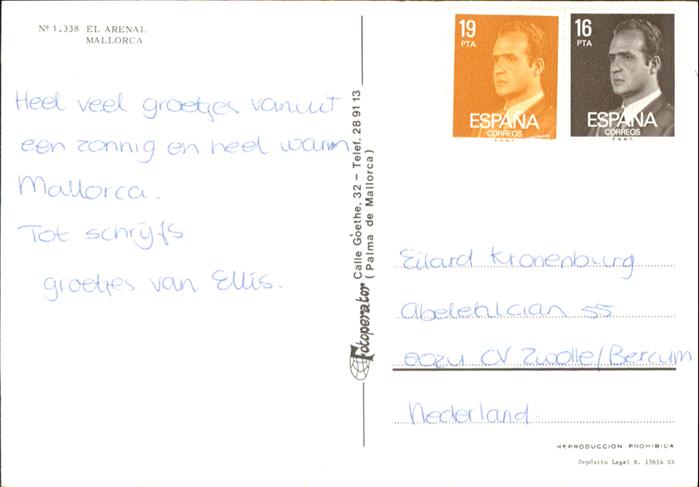 Nº 1.338 EL ARENAL
MALLORCA
Heel veel groetjes vanuit
een zonnig en heel warm
Mallorca.
Tot schrijfs
groetjes van Ellis.
Fotoperator Calle Goethe, 32 - Telef. 28 91 13
(Palma de Mallorca)
19
PTA
ESPAÑA
CORREOS
F.N.M.T.
16
PTA
ESPAÑA
CORREOS
F.N.M.T.
Eilard Kronenburg
55
CV Zwolle/Bercum
Nederland.
REPRODUCCION PROHIBIDA
Depósito Legal B. 13614 XX